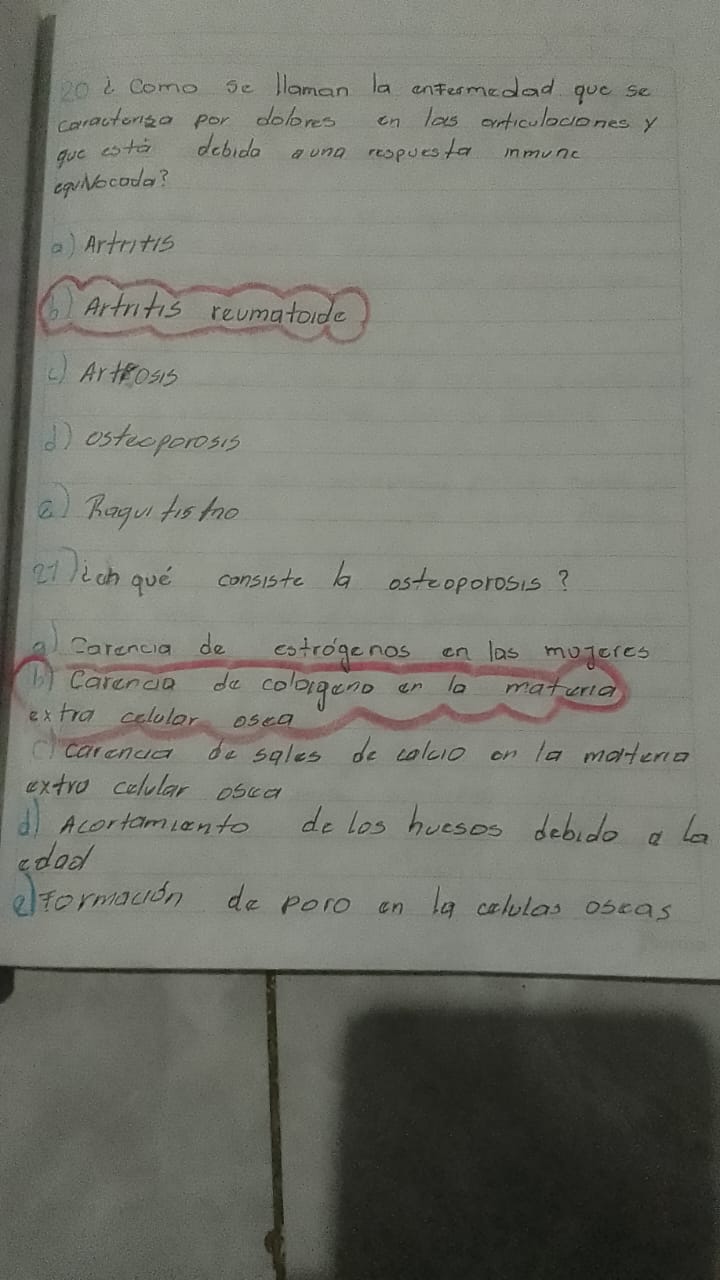 20 ¿ Como se llaman la enfermedad que se
caracteriza por dolores en las articulaciones y
que está debida a una respuesta inmune
equivocada?
a) Artritis
b) Artritis reumatoide
c) Artrosis
d) osteoporosis
e) Raquitismo
21) ¿en qué consiste la osteoporosis?
a) Carencia de estrógenos en las mujeres
b) Carencia de colorgeno en la materia
extra celular osea
c) carencia de sales de calcio en la materia
extra celular osea
d) Acortamiento de los huesos debido a la
edad
e) Formación de poro en la celulas oseas